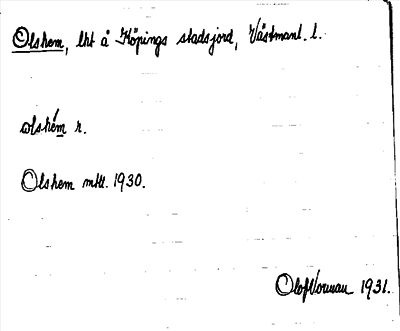 Olshem, lht å Köpings stadsjord, Västmanl. l.
olshém r.
Olshem mtl. 1930.
Olof 1931.